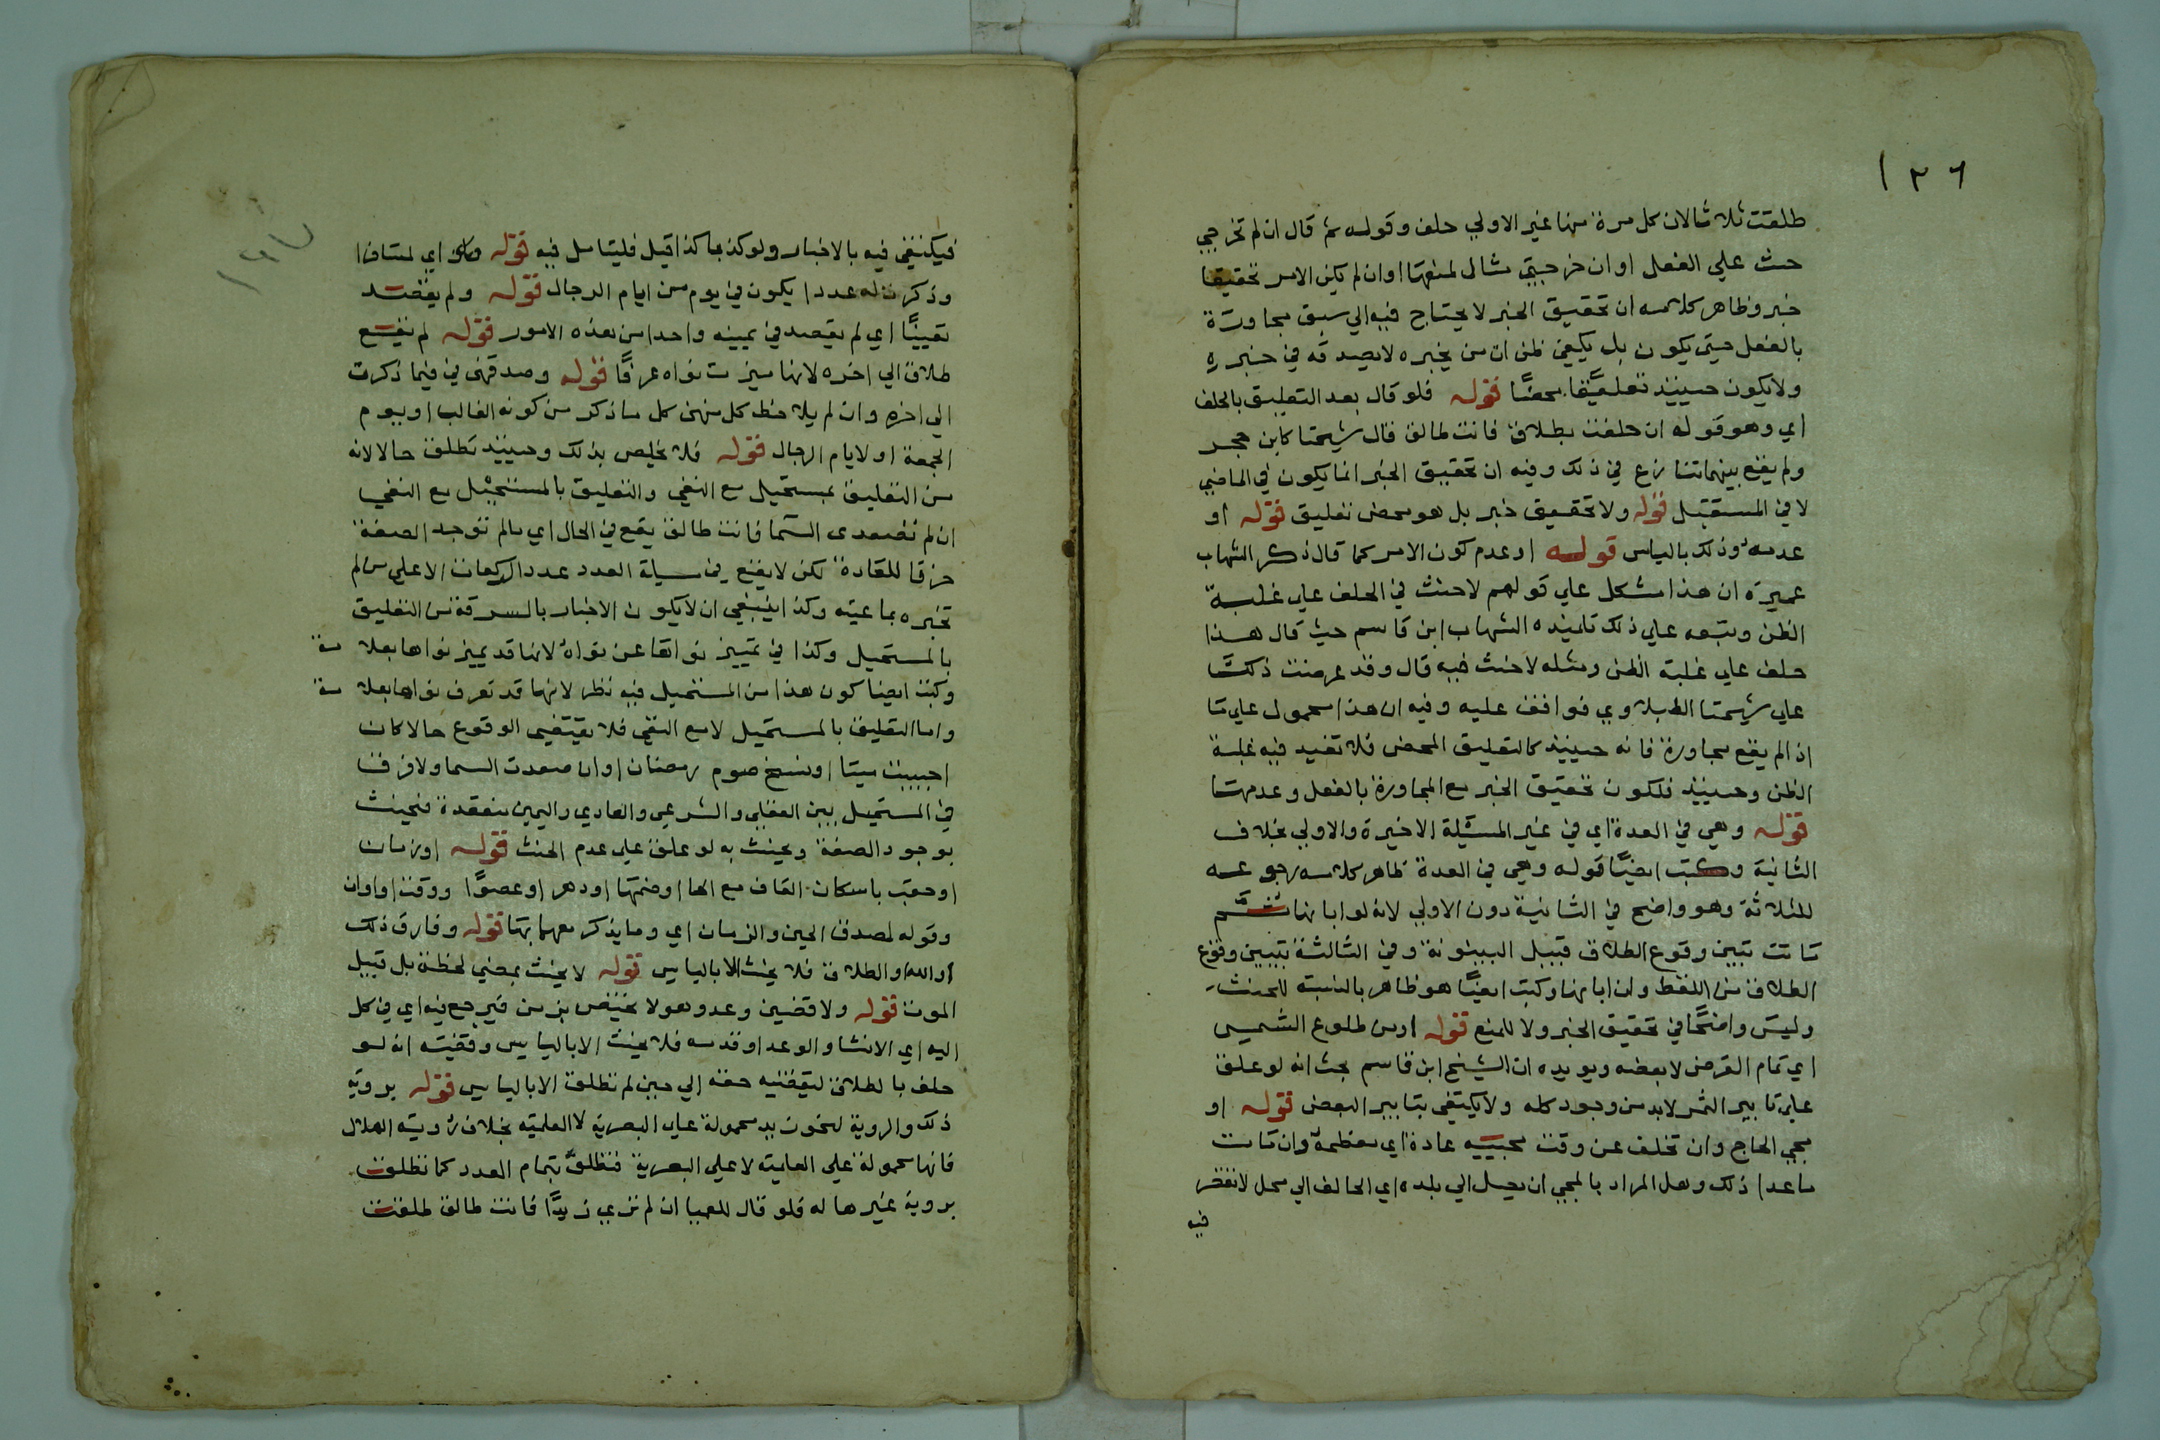 ١٣٦
طلقت ثلاثا لان كل مرة منها غير الاولي حلف وقوله ثم قال ان لم تخرجي
حث علي الفعل او ان خرجتي مثال لمنعها او ان لم يكن الامر تحقيقا
خبر وظاهر كلامه ان تحقيق الخبر لا يحتاج فيه الي سبق مجاورة
بالفعل حتي يكون بل يكفي ظن ان من يخبره لا يصدقه في خبره
ولا يكون حينيذ تعليقا محضًا قوله فلو قال بعد التعليق بالحلف
اي وهو قوله ان حلفت بطلاق فانت طالق قال شيخنا كابن حجر
ولم يقع بينهما تنازع في ذلك وفيه ان تحقيق الخبر انما يكون في الماضي
لا في المستقبل قوله ولا تحقيق خبر بل هو محض تعليق قوله او
عدمه وذلك بالياس قوله او عدم كون الامر كما قال ذكر الشهاب
عميرة ان هذا مشكل علي قولهم لا حنث في الحلف علي غلبة
الظن وتبعه علي ذلك تلميذه الشهاب ابن قاسم حيث قال هذا
حلف علي غلبة الظن ومثله لا حنث فيه قال وقد عرضت ذلك
علي شيخنا الطبلاوي فوافق عليه وفيه ان هذا محمول علي ما
اذا لم يقع مجاورة فانه حينيذ كالتعليق المحض فلا تفيد فيه غلبة
الظن وحينيذ فلكون تحقيق الخبر مع المجاورة بالفعل وعدمها
قوله وهي في العدة اي في غير المسئلة الاخيرة والاولي بخلاف
الثانية وكتب ايضًا قوله وهي في العدة ظاهر كلامه رجوعه
للثلاثة وهو واضح في الثانية دون الاولي لانه لو ابانها ثم
ماتت تبين وقوع الطلاق قبيل البينونة وفي الثالثة تبين وقوع
الطلاق من اللفظ وان ابانها وكتب ايضًا هو ظاهر بالنسبة للحنث
وليس واضحًا في تحقيق الخبر ولا للمنع قوله او من طلوع الشمس
اي تمام القرص لا بعضه ويويده ان الشيخ ابن قاسم بحث انه لو علق
علي تابير الثمر لابد من وجود كله ولا يكتفي بتابير البعض قوله او
مجي الحاج وان تخلف عن وقت مجييه عادة اي معظمه وان مات
ما عدا ذلك وهل المراد بالمجي ان يصل الي بلده اي الحالف الي محل لا تقصر
فيه
١٣٧
فيكتفي فيه بالاخبار ولو كذبا كذا قيل فليتامل فيه قوله اي لمتافا
وذكرت له عددا يكون في يوم من ايام الرجال قوله ولم يقصد
تعيينًا اي لم يقصد في يمينه واحدا من هذه الامور قوله لم يقع
طلاق الي اخره لانها ميزت نواه عرفًا قوله وصدقهن في فيما ذكرت
الي اخره وان لم يلاحظ كل منهن كل ما ذكر من كونه الغالب او يوم
الجمعة او لايام الرجال قوله فلا تخلص بذلك وحينيذ تطلق حالا لانه
من التعليق بمستحيل مع النفي والتعليق بالمستحيل مع النفي
ان لم تصعدي السما فانت طالق يقع في الحال اي ما لم توجد الصفة
خرقا للعادة لكن لا يقع في مسيلة العدد عدد الركعات الا علي من لم
تخبره بما عينه وكذا ينبغي ان لا يكون الاخبار بالسرقة من التعليق
بالمستحيل وكذا في تمييز نواها عن نواه لانها قد يميز نواها بعلامة
وكتب ايضا كون هذا من المستحيل فيه نظر لانها قد تعرف نواها بعلامة
واما التعليق بالمستحيل لا مع النفي فلا يقتضي الوقوع حالا كان
احييت ميتا او نسخ صوم رمضان او ان صعدت السما ولا فرق
في المستحيل بين العقلي والشرعي والعادي واليمين منعقدة فيحنث
بوجود الصفة ويحنث به لو علق علي عدم الحنث قوله او زمان
او حقب باسكان القاف مع الحا او ضمها او دهر او عصرًا ووقت او اوان
وقوله لصدق الحين والزمان اي وما يذكر معهما بها قوله وفارق ذلك
او والله او الطلاق فلا يحنث الا بالياس قوله لا يحنث بمضي لحظة بل قبيل
الموت قوله ولا قضين وعد وهو لا يختص بزمن فيرجع فيه اي في كل
اليه اي الانشا والوعد او قدمه فلا يحنث الا بالياس وقضيته انه لو
حلف بالطلاق ليقضينه حقه الي حين لم تطلق الا بالياس قوله بروية
ذلك والروية لنحو زيد محمولة علي البصرية لا العلمية بخلاف روية الهلال
فانها محمولة علي العلمية لا علي البصرية فتطلق بتمام العدد كما تطلق
بروية غيرها له فلو قال للعميا ان لم تري زيدًا فانت طالق طلقت